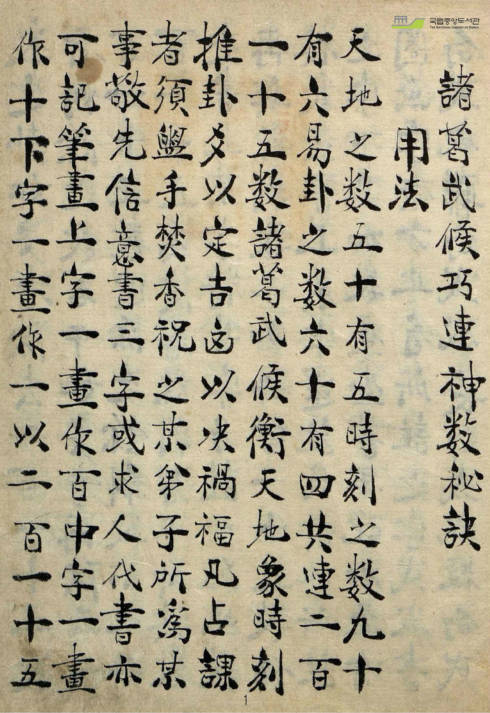 국립중앙도서관
THE NATIONAL LIBRARY OF KOREA
諸葛武候巧連神数秘訣
用法
天地之数五十有五時刻之数九十
有六易卦之数六十有四共連二百
一十五数諸葛武候衡天地象時刻
推卦爻以定吉凶以决禍福凡占課
者須盥手焚香祝之某弟子所爲某
事敬先信意書三字或求人代書亦
可記筆畫上字一畫作百中字一畫
作十下字一畫作一以二百一十五
1